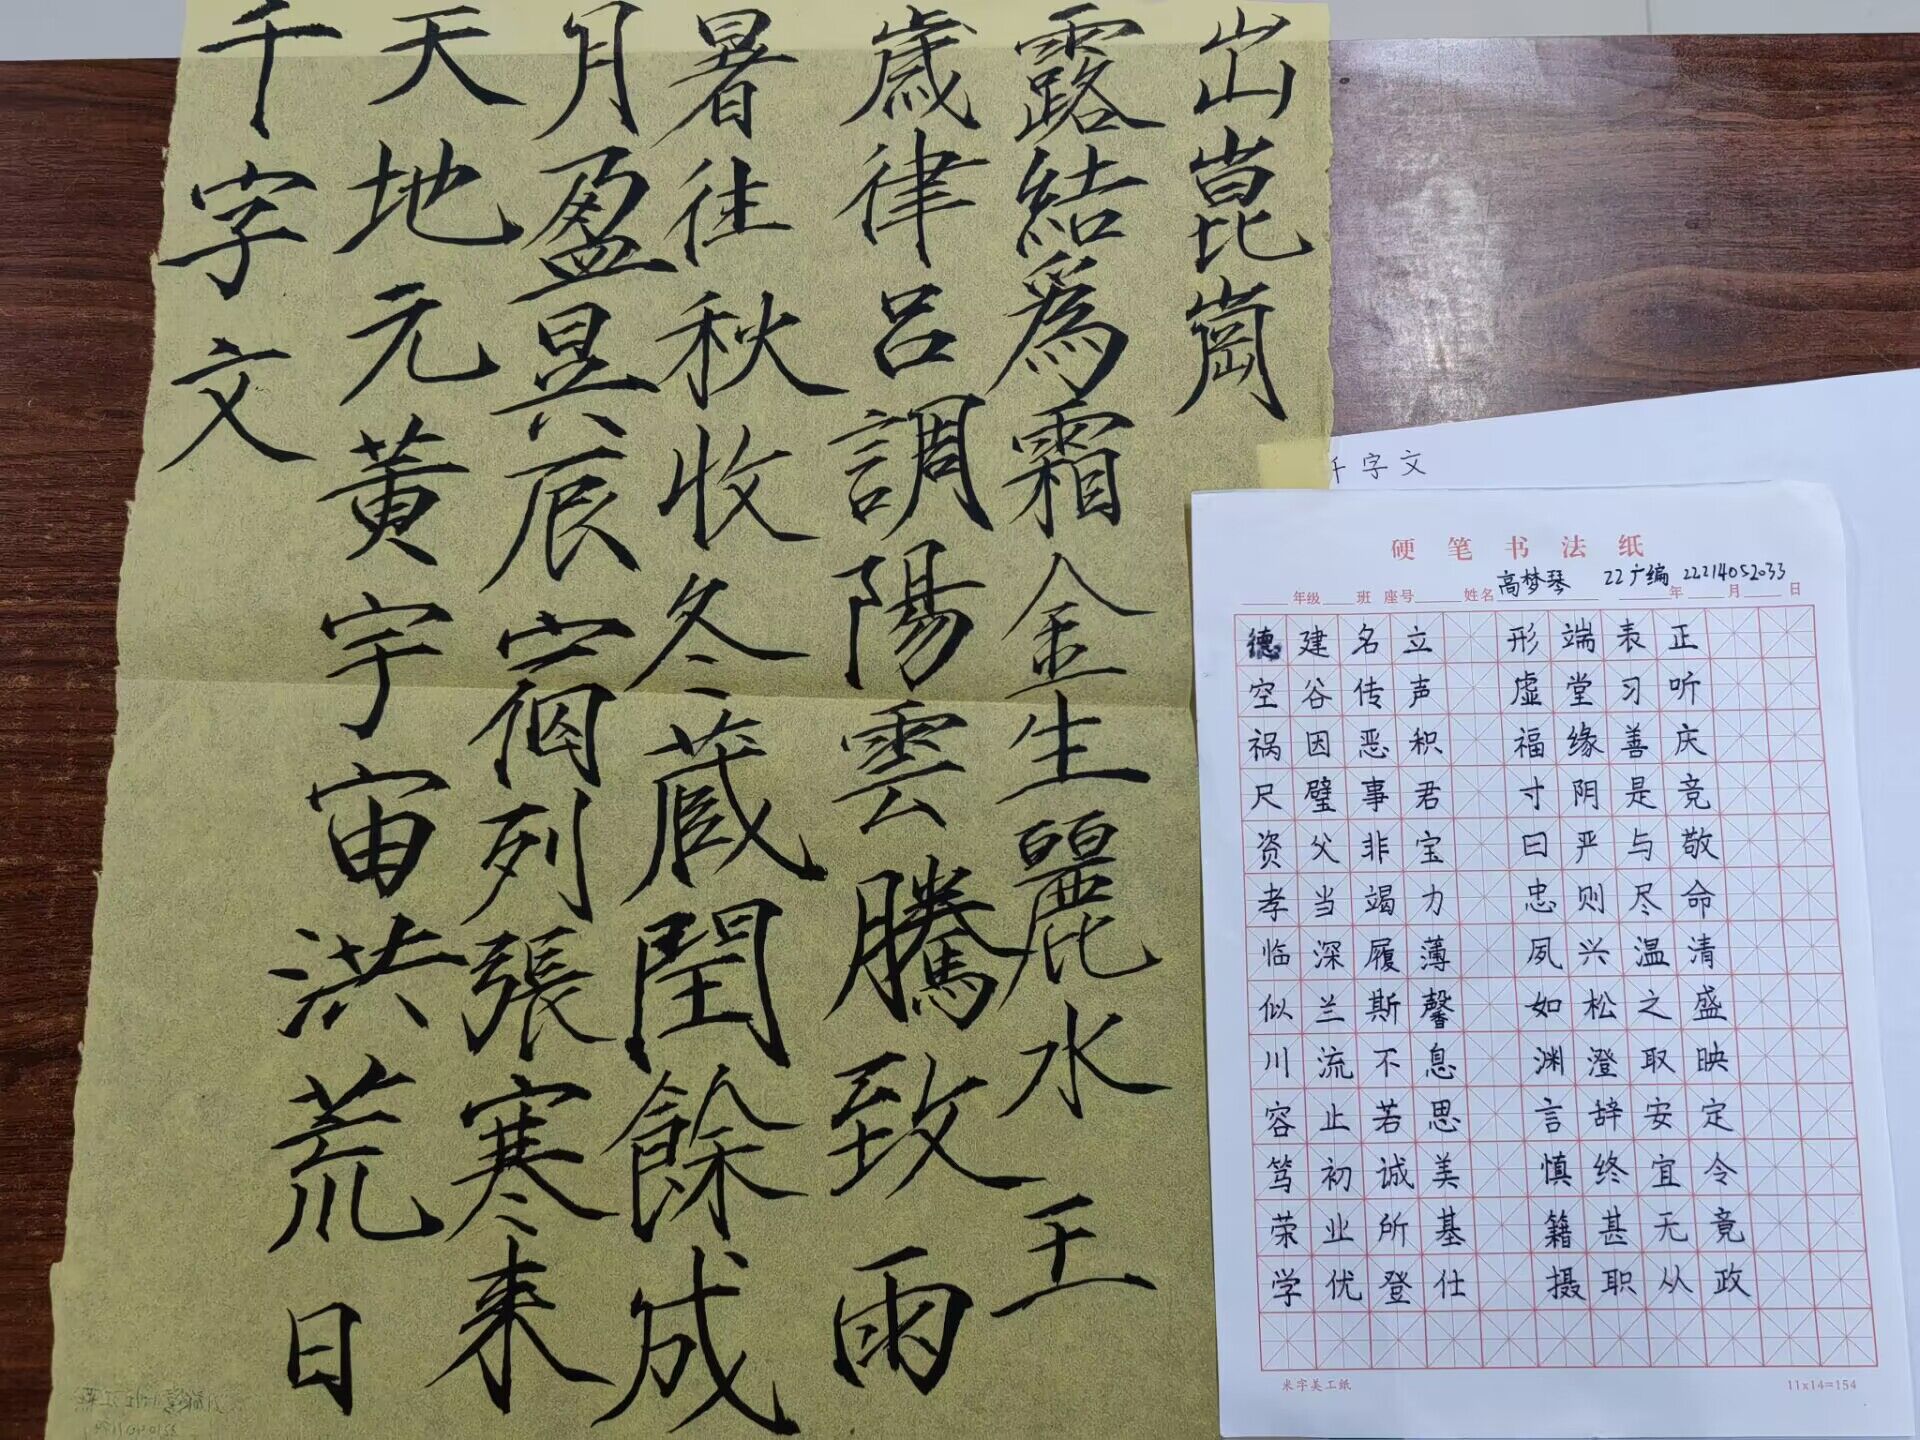 千字文
天地元黄宇宙洪荒日
月盈昃辰宿列張寒来
暑往秋收冬蔵閏餘成
歳律呂調陽雲騰致雨
露結爲霜金生麗水王
出崑崗
千字文
硬笔书法纸
年级 班 座号 姓名 高梦琴 22广编 22214052033 年 月 日
德建名立 形端表正
空谷传声 虚堂习听
祸因恶积 福缘善庆
尺璧事君 寸阴是竞
资父非宝 曰严与敬
孝当竭力 忠则尽命
临深履薄 夙兴温清
似兰斯馨 如松之盛
川流不息 渊澄取映
容止若思 言辞安定
笃初诚美 慎终宜令
荣业所基 籍甚无竟
学优登仕 摄职从政
米字美工纸 11x14=154